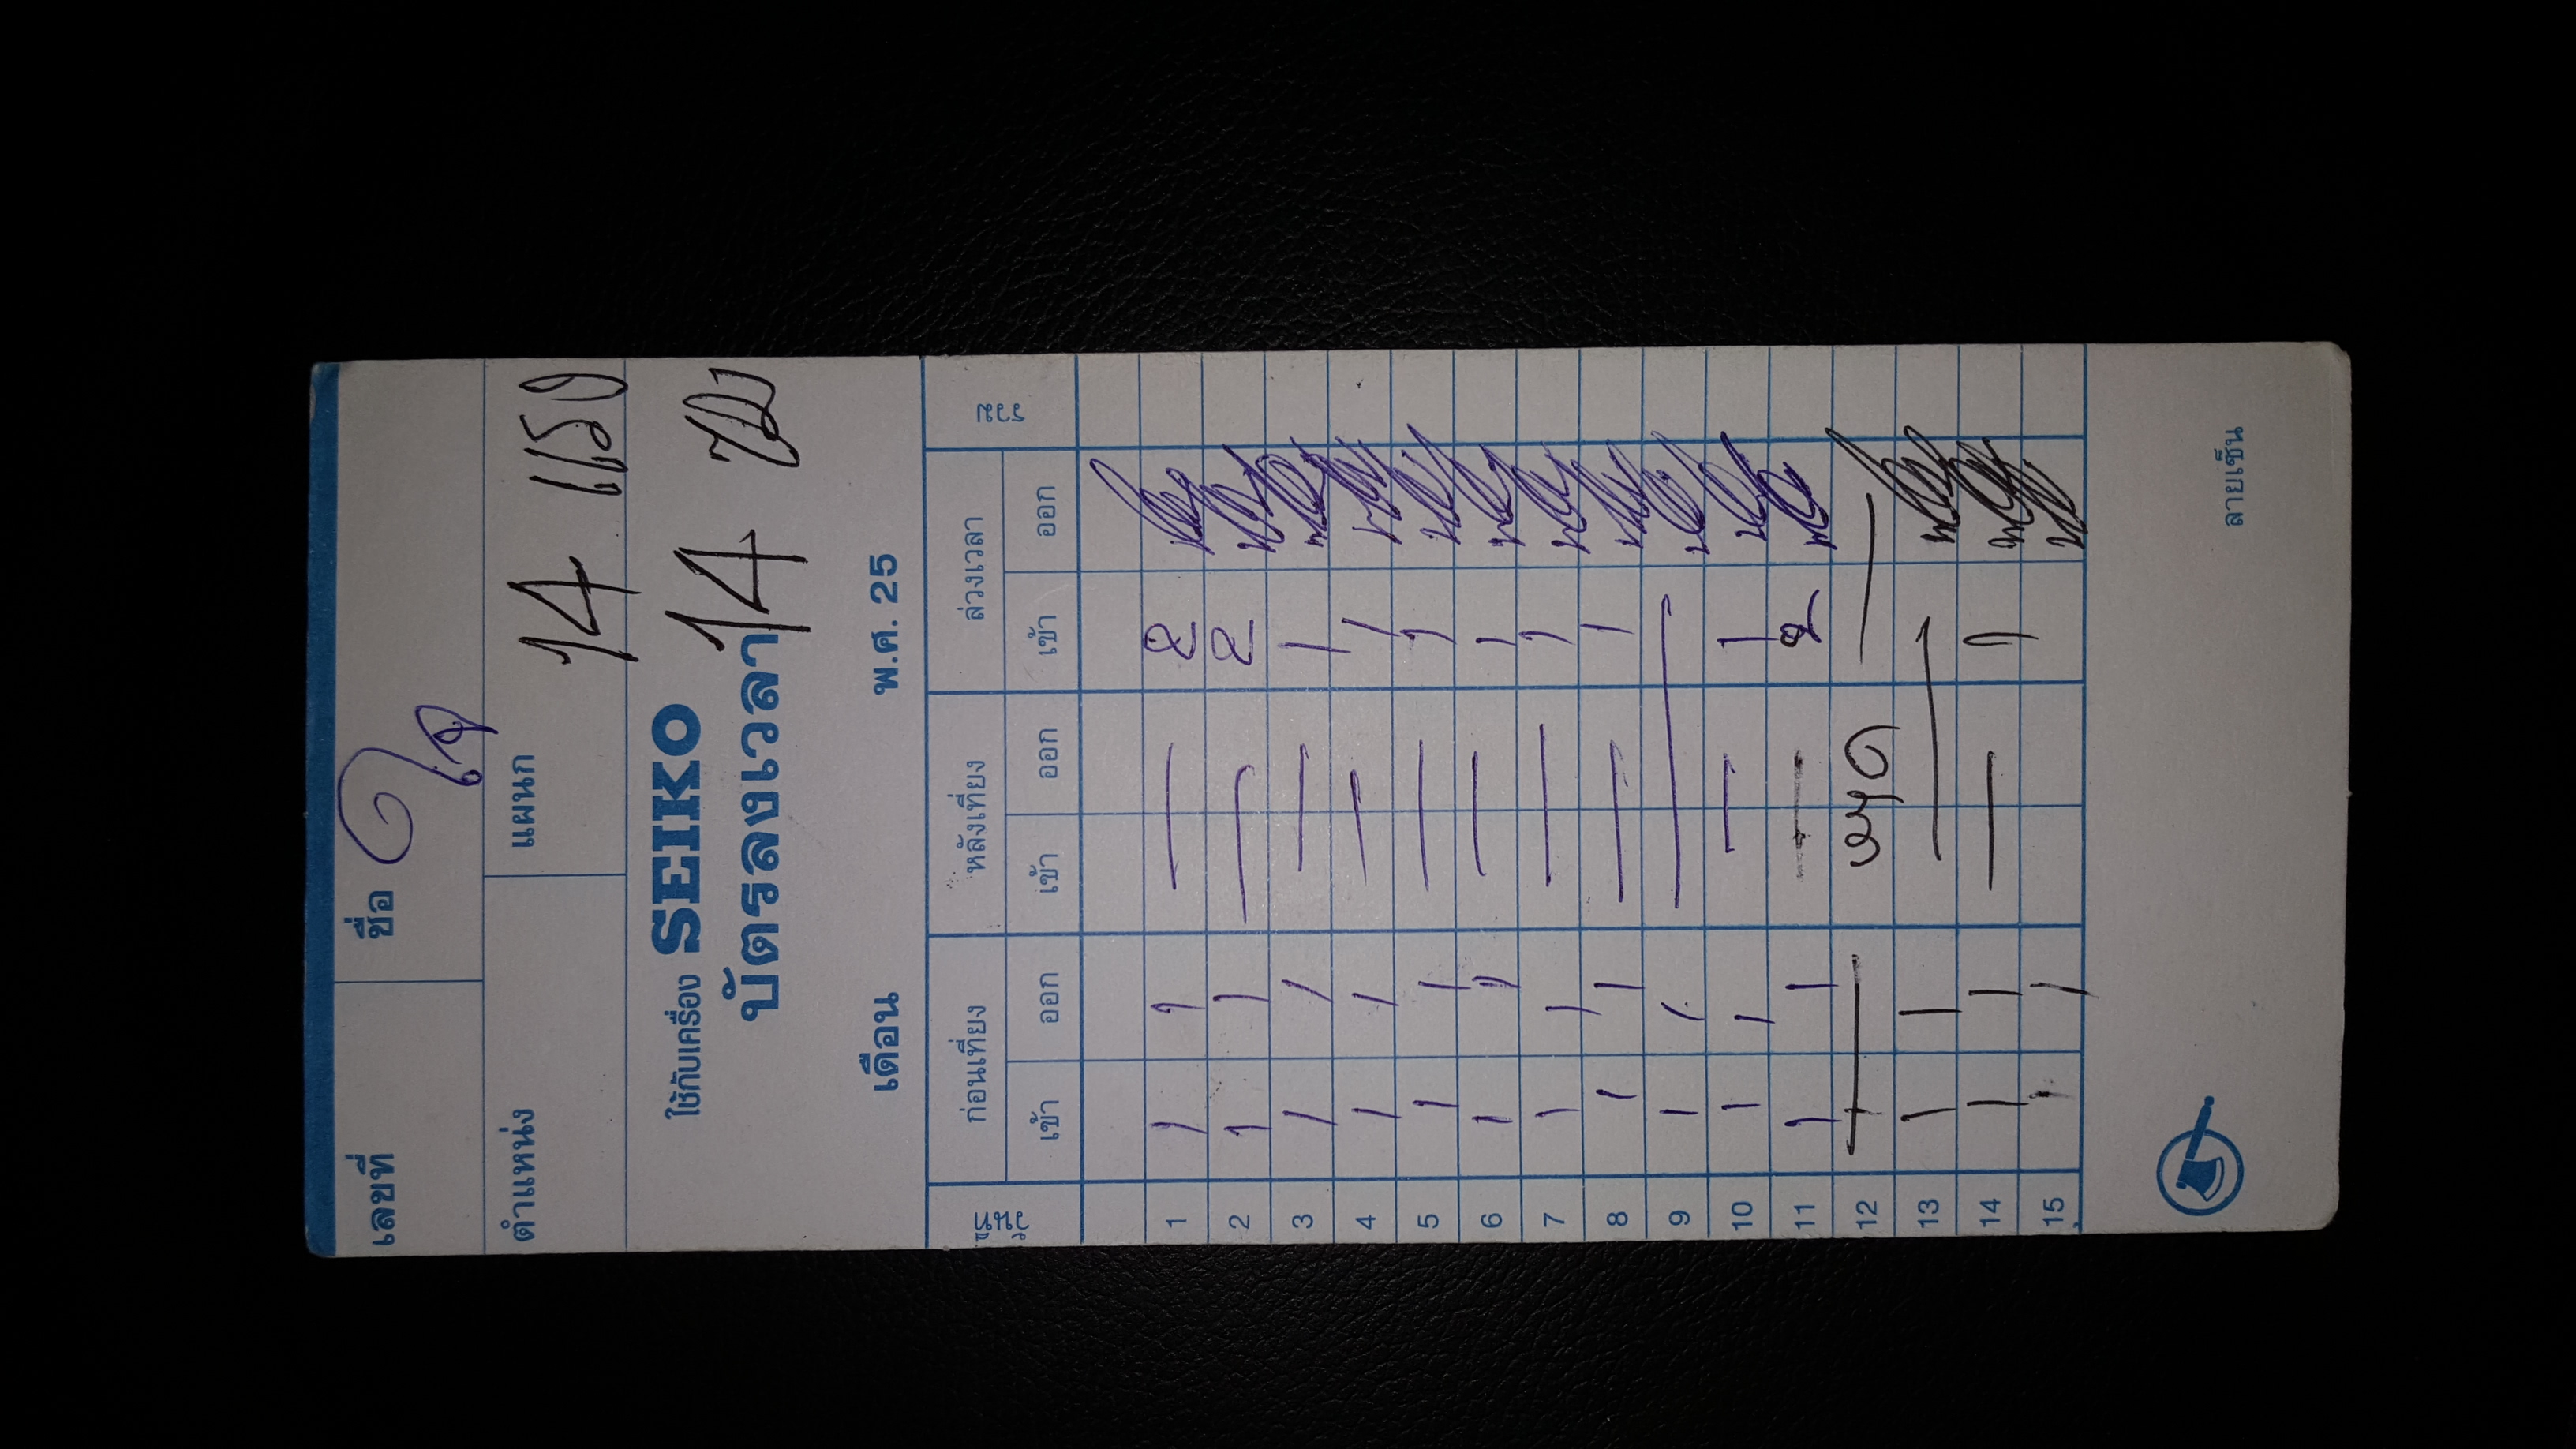 เลขที่ ชื่อ ใจ
ตำแหน่ง แผนก 14 แรง
ใช้กับเครื่อง SEIKO
บัตรลงเวลา 14 ชม
เดือน พ.ศ. 25
วันที่ ก่อนเที่ยง หลังเที่ยง ล่วงเวลา รวม
เข้า ออก เข้า ออก เข้า ออก
1 1 1 — 2
2 1 1 — 2
3 1 1 — 1
4 1 1 — 1
5 1 1 — 1
6 1 1 — 1
7 1 1 — 1
8 1 1 — 1
9 1 1 —
10 1 1 — 1
11 1 1 — 2
12 — หยุด —
13 1 1 —
14 1 1 — 1
15 1 1
ลายเซ็น